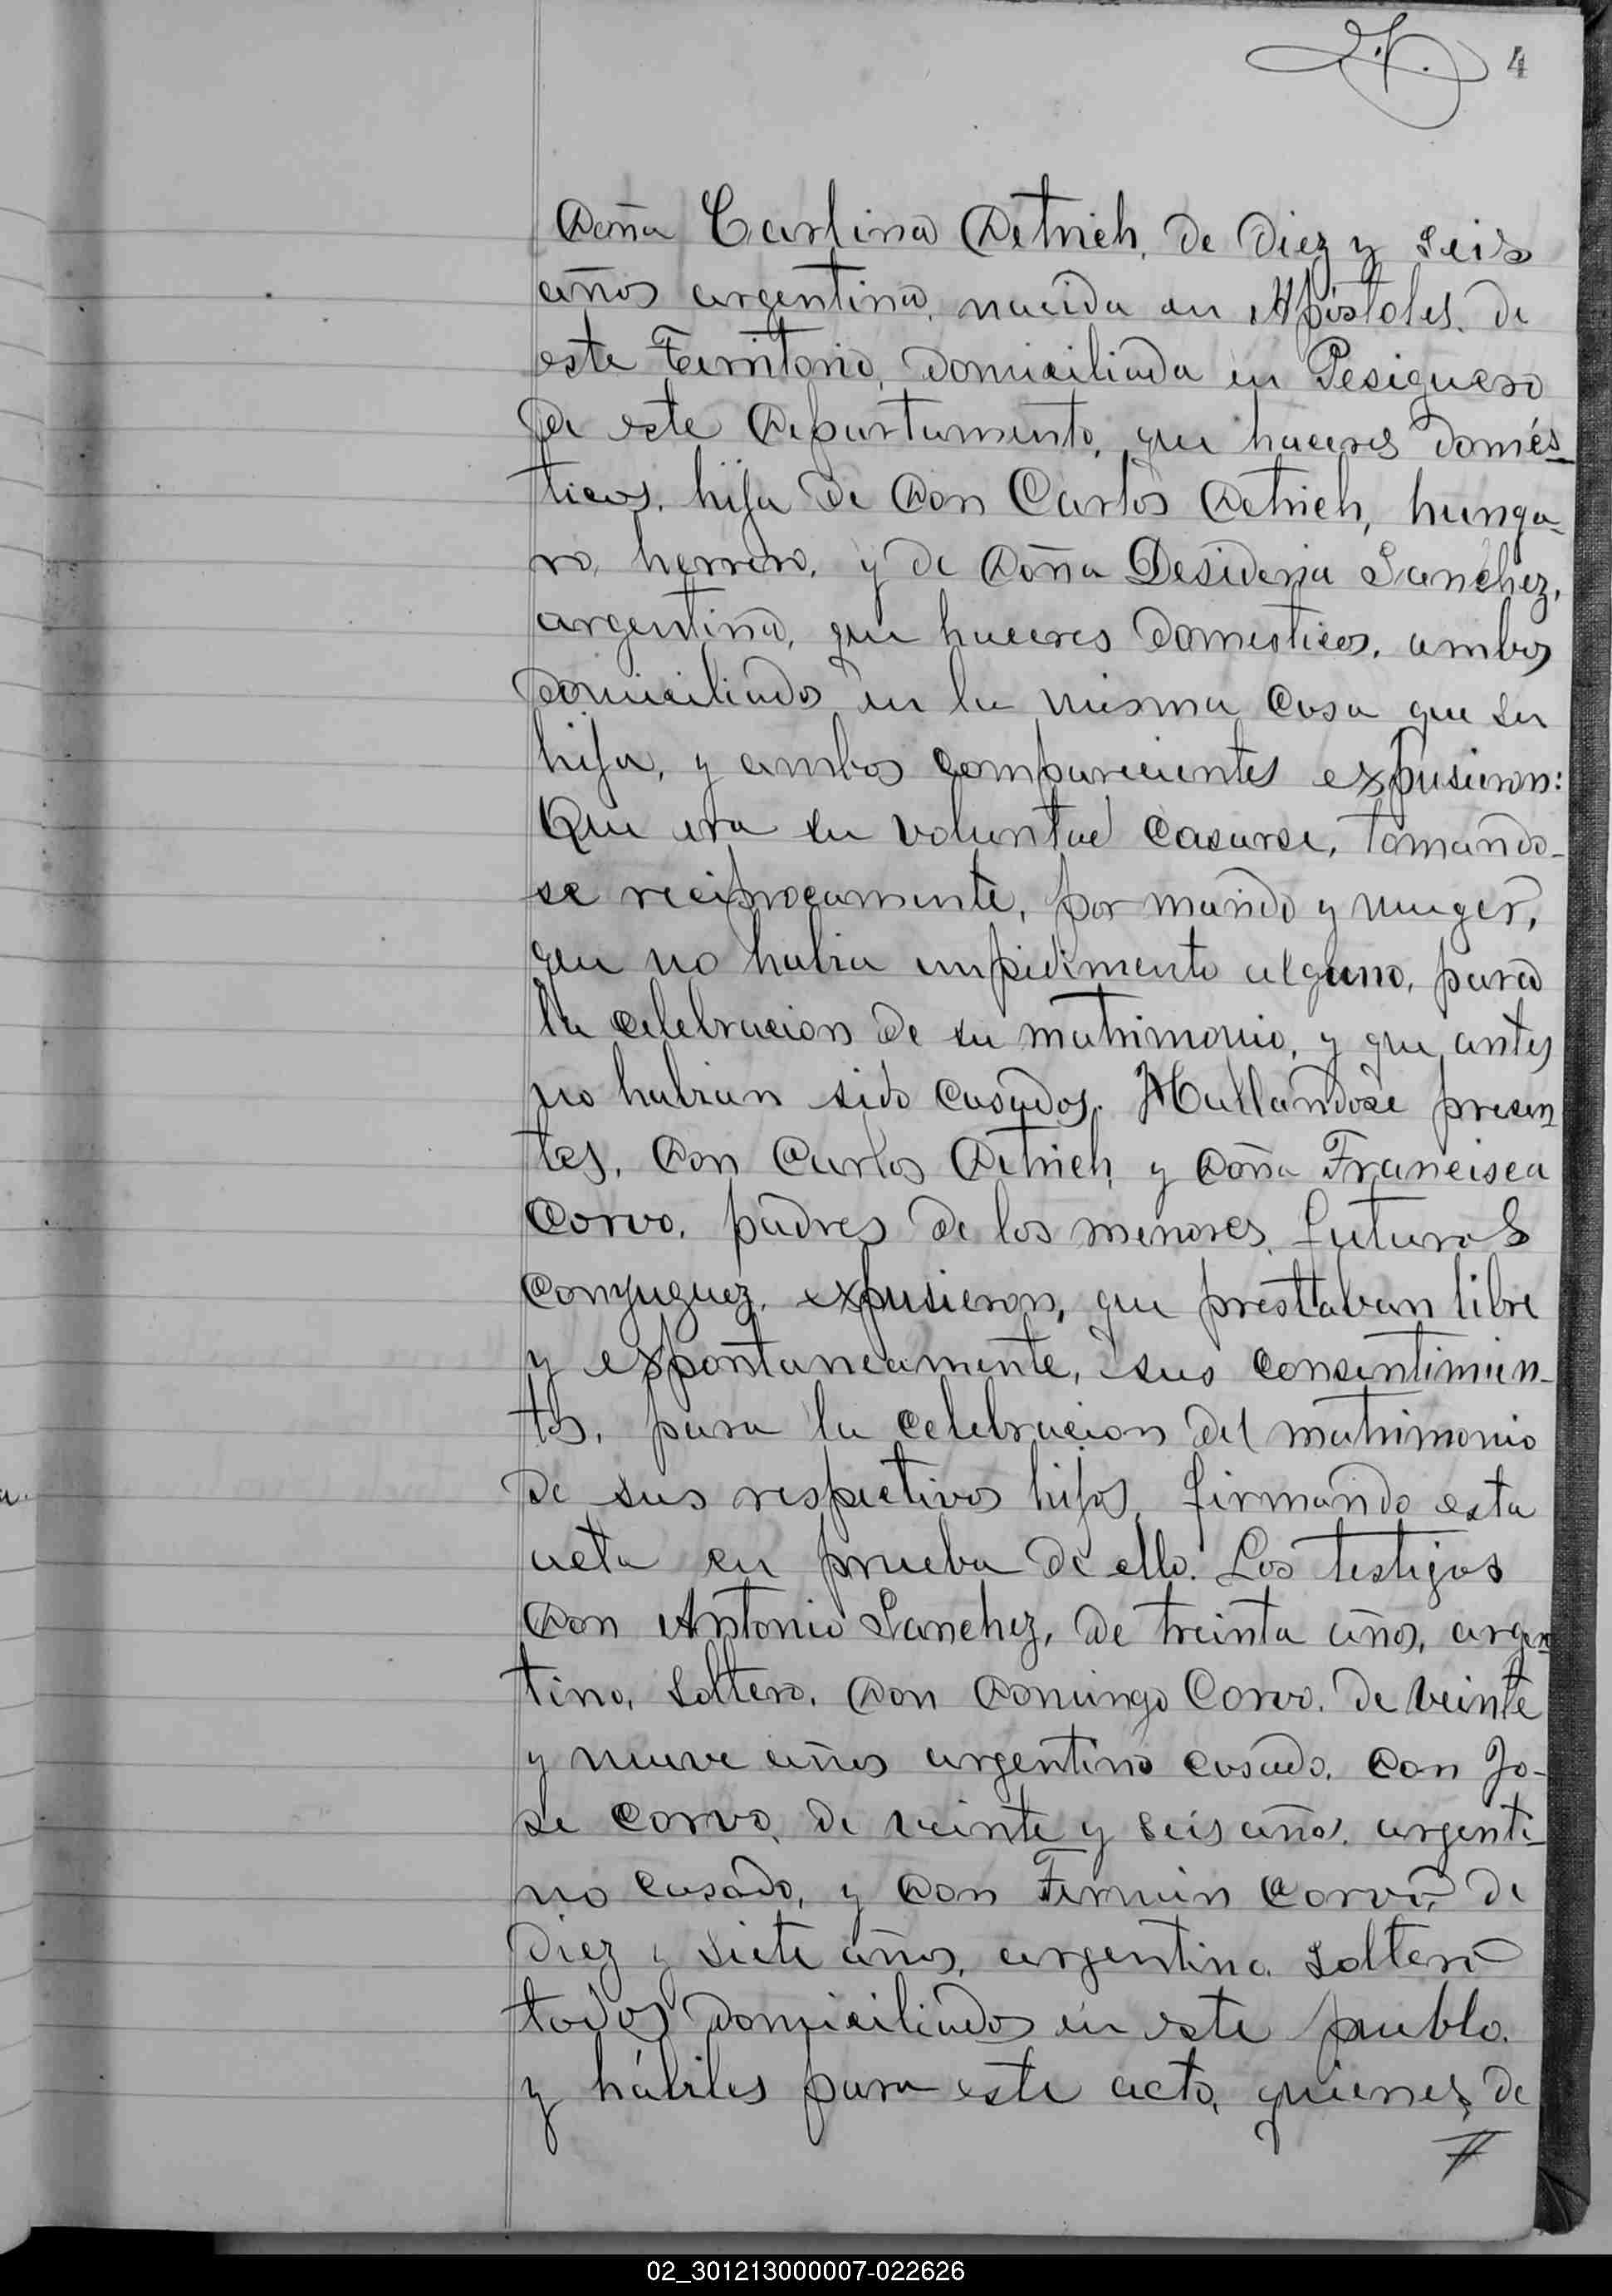 4
Doña Carlina Detrich, de diez y seis
años argentina, nacida en Apóstoles, de
este Territorio, domiciliada en Pesiguero
de este Departamento, que haceres domés-
ticos, hija de Don Carlos Detrich, hunga-
ro, herrero, y de Doña Desideria Sanchez,
argentina, que haceres domesticos, ambos
domiciliados en la misma casa que su
hija, y ambos comparecientes expusieron:
Que era su voluntad casarse, tomando-
se reciprocamente, por marido y muger,
que no habia impedimento alguno, para
la celebracion de su matrimonio, y que antes
no habian sido casados. Hallandose presen-
tes, Don Carlos Detrich, y Doña Francisca
Corvo, padres de los menores, futuros
conyuguez, expusieron, que prestavan libre
y espontaneamente, sus consentimien-
tos, para la celebracion del matrimonio
de sus respectivos hijos, firmando esta
acta en prueba de ello. Los testigos
Don Antonio Sanchez, de treinta años, argen-
tino, soltero, Don Domingo Corvo, de veinte
y nueve años argentino casado, Don Jo-
se Corvo, de veinte y seis años, argenti-
no casado, y Don Fermin Corvo, de
diez y siete años, argentino, soltero
todos domiciliados en este pueblo,
y hábiles para este acto, quienes de
02_301213000007-022626